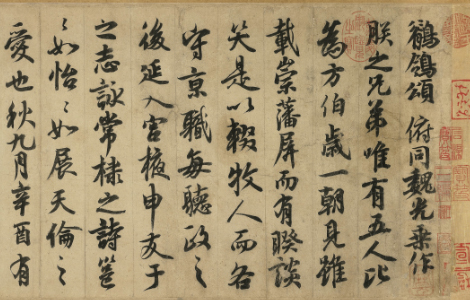 鶺鴒頌 俯同魏光乘作
朕之兄弟唯有五人比
為方伯歲一朝見雖
載崇藩屏而有睽談
笑是以輟牧人而各
守京職每聽政之
後延入宮掖申友于
之志詠常棣之詩邕
〻如怡〻如展天倫之
愛也秋九月辛酉有